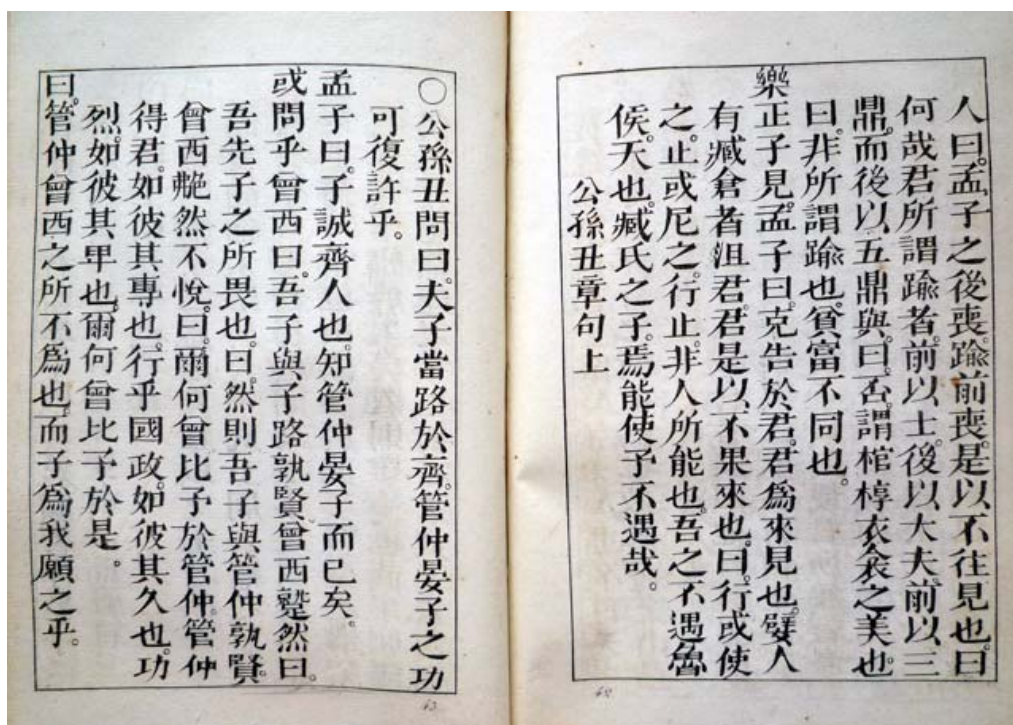 人曰。孟子之後喪。踰前喪。是以。不往見也。曰
何哉君所謂踰者。前以士。後以大夫。前以三
鼎。而後以五鼎與。曰。否。謂棺椁衣衾之美也。
曰。非所謂踰也。貧富不同也。
樂正子見。孟子曰。克告於君。君爲來見也。嬖人
有臧倉者沮君。君是以。不果來也。曰。行或使
之。止或尼之。行止。非人所能也。吾之不遇魯
侯。天也。臧氏之子。焉能使予不遇哉。
公孫丑章句上
○公孫丑問曰。夫子當路於齊。管仲晏子之功
可復許乎。
孟子曰。子誠齊人也。知管仲晏子而已矣。
或問乎曾西曰。吾子與子路孰賢曾西蹵然曰。
吾先子之所畏也。曰。然則吾子與管仲孰賢。
曾西艴然不悅。曰。爾何曾比予於管仲。管仲
得君。如彼其專也。行乎國政。如彼其久也。功
烈。如彼其卑也。爾何曾比予於是。
曰。管仲曾西之所不爲也。而子爲我願之乎。